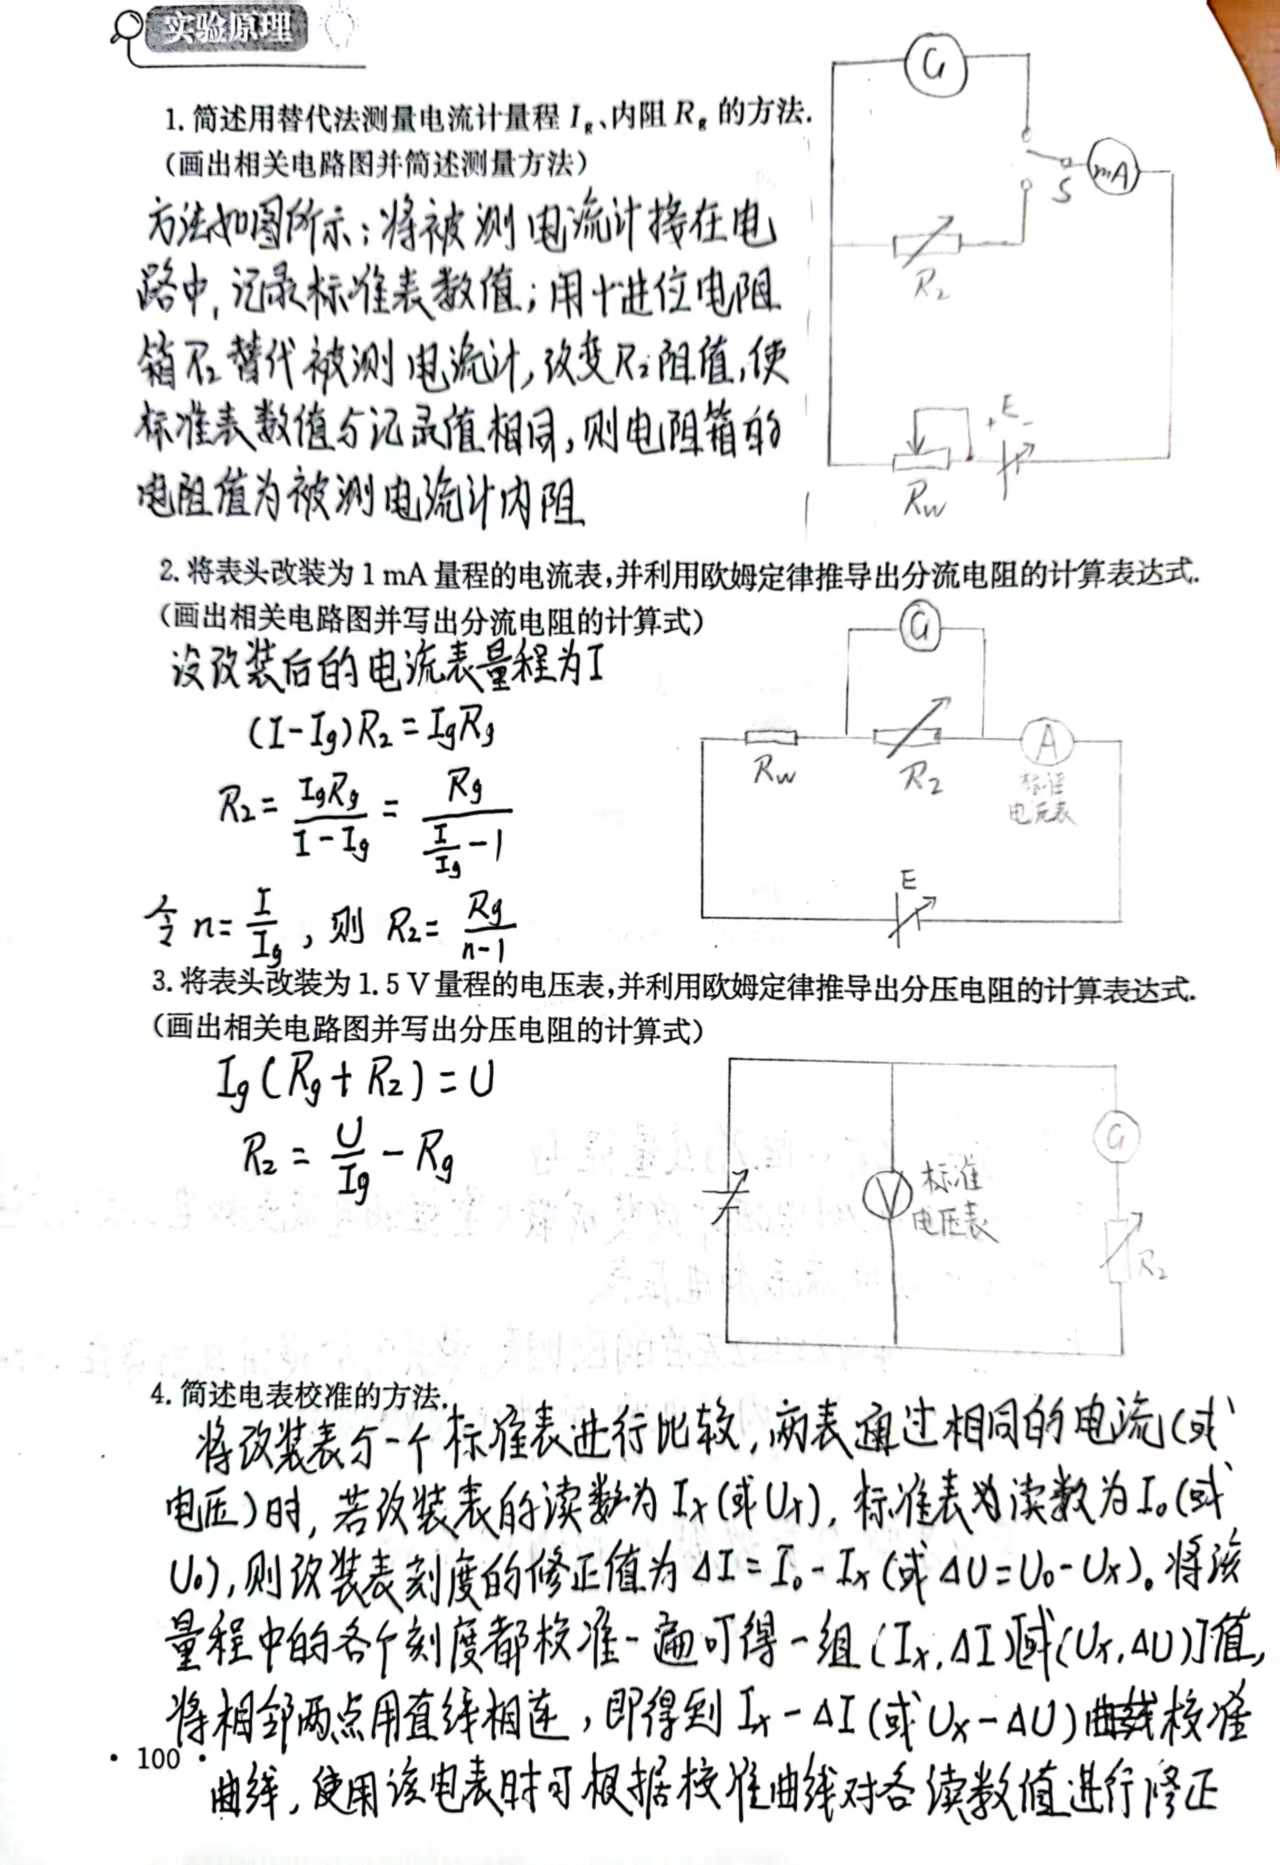 实验原理
1. 简述用替代法测量电流计量程 Ig、内阻 Rg 的方法.
(画出相关电路图并简述测量方法)
方法如图所示:将被测电流计接在电
路中,记录标准表数值;用十进位电阻
箱R2替代被测电流计,改变R2阻值,使
标准表数值与记录值相同,则电阻箱的
电阻值为被测电流计内阻
G
S
mA
R2
+ E -
Rw
2. 将表头改装为 1 mA 量程的电流表,并利用欧姆定律推导出分流电阻的计算表达式.
(画出相关电路图并写出分流电阻的计算式)
设改装后的电流表量程为I
(I-Ig)R2=IgRg
R2= IgRg/(I-Ig) = Rg/(I/Ig -1)
令 n= I/Ig , 则 R2= Rg/(n-1)
G
Rw
R2
A
标准
电流表
E
3. 将表头改装为 1.5 V 量程的电压表,并利用欧姆定律推导出分压电阻的计算表达式.
(画出相关电路图并写出分压电阻的计算式)
Ig(Rg+R2)=U
R2 = U/Ig - Rg
G
V
标准
电压表
R2
4. 简述电表校准的方法.
将改装表与一个标准表进行比较,两表通过相同的电流(或
电压)时,若改装表的读数为Ix(或Ux),标准表读数为I0(或
U0),则改装表刻度的修正值为ΔI=I0-Ix(或ΔU=U0-Ux)。将该
量程中的各个刻度都校准一遍可得一组(Ix,ΔI)[或(Ux,ΔU)]值,
将相邻两点用直线相连,即得到Ix-ΔI(或Ux-ΔU)校准
· 100 ·
曲线,使用该电表时可根据校准曲线对各读数值进行修正